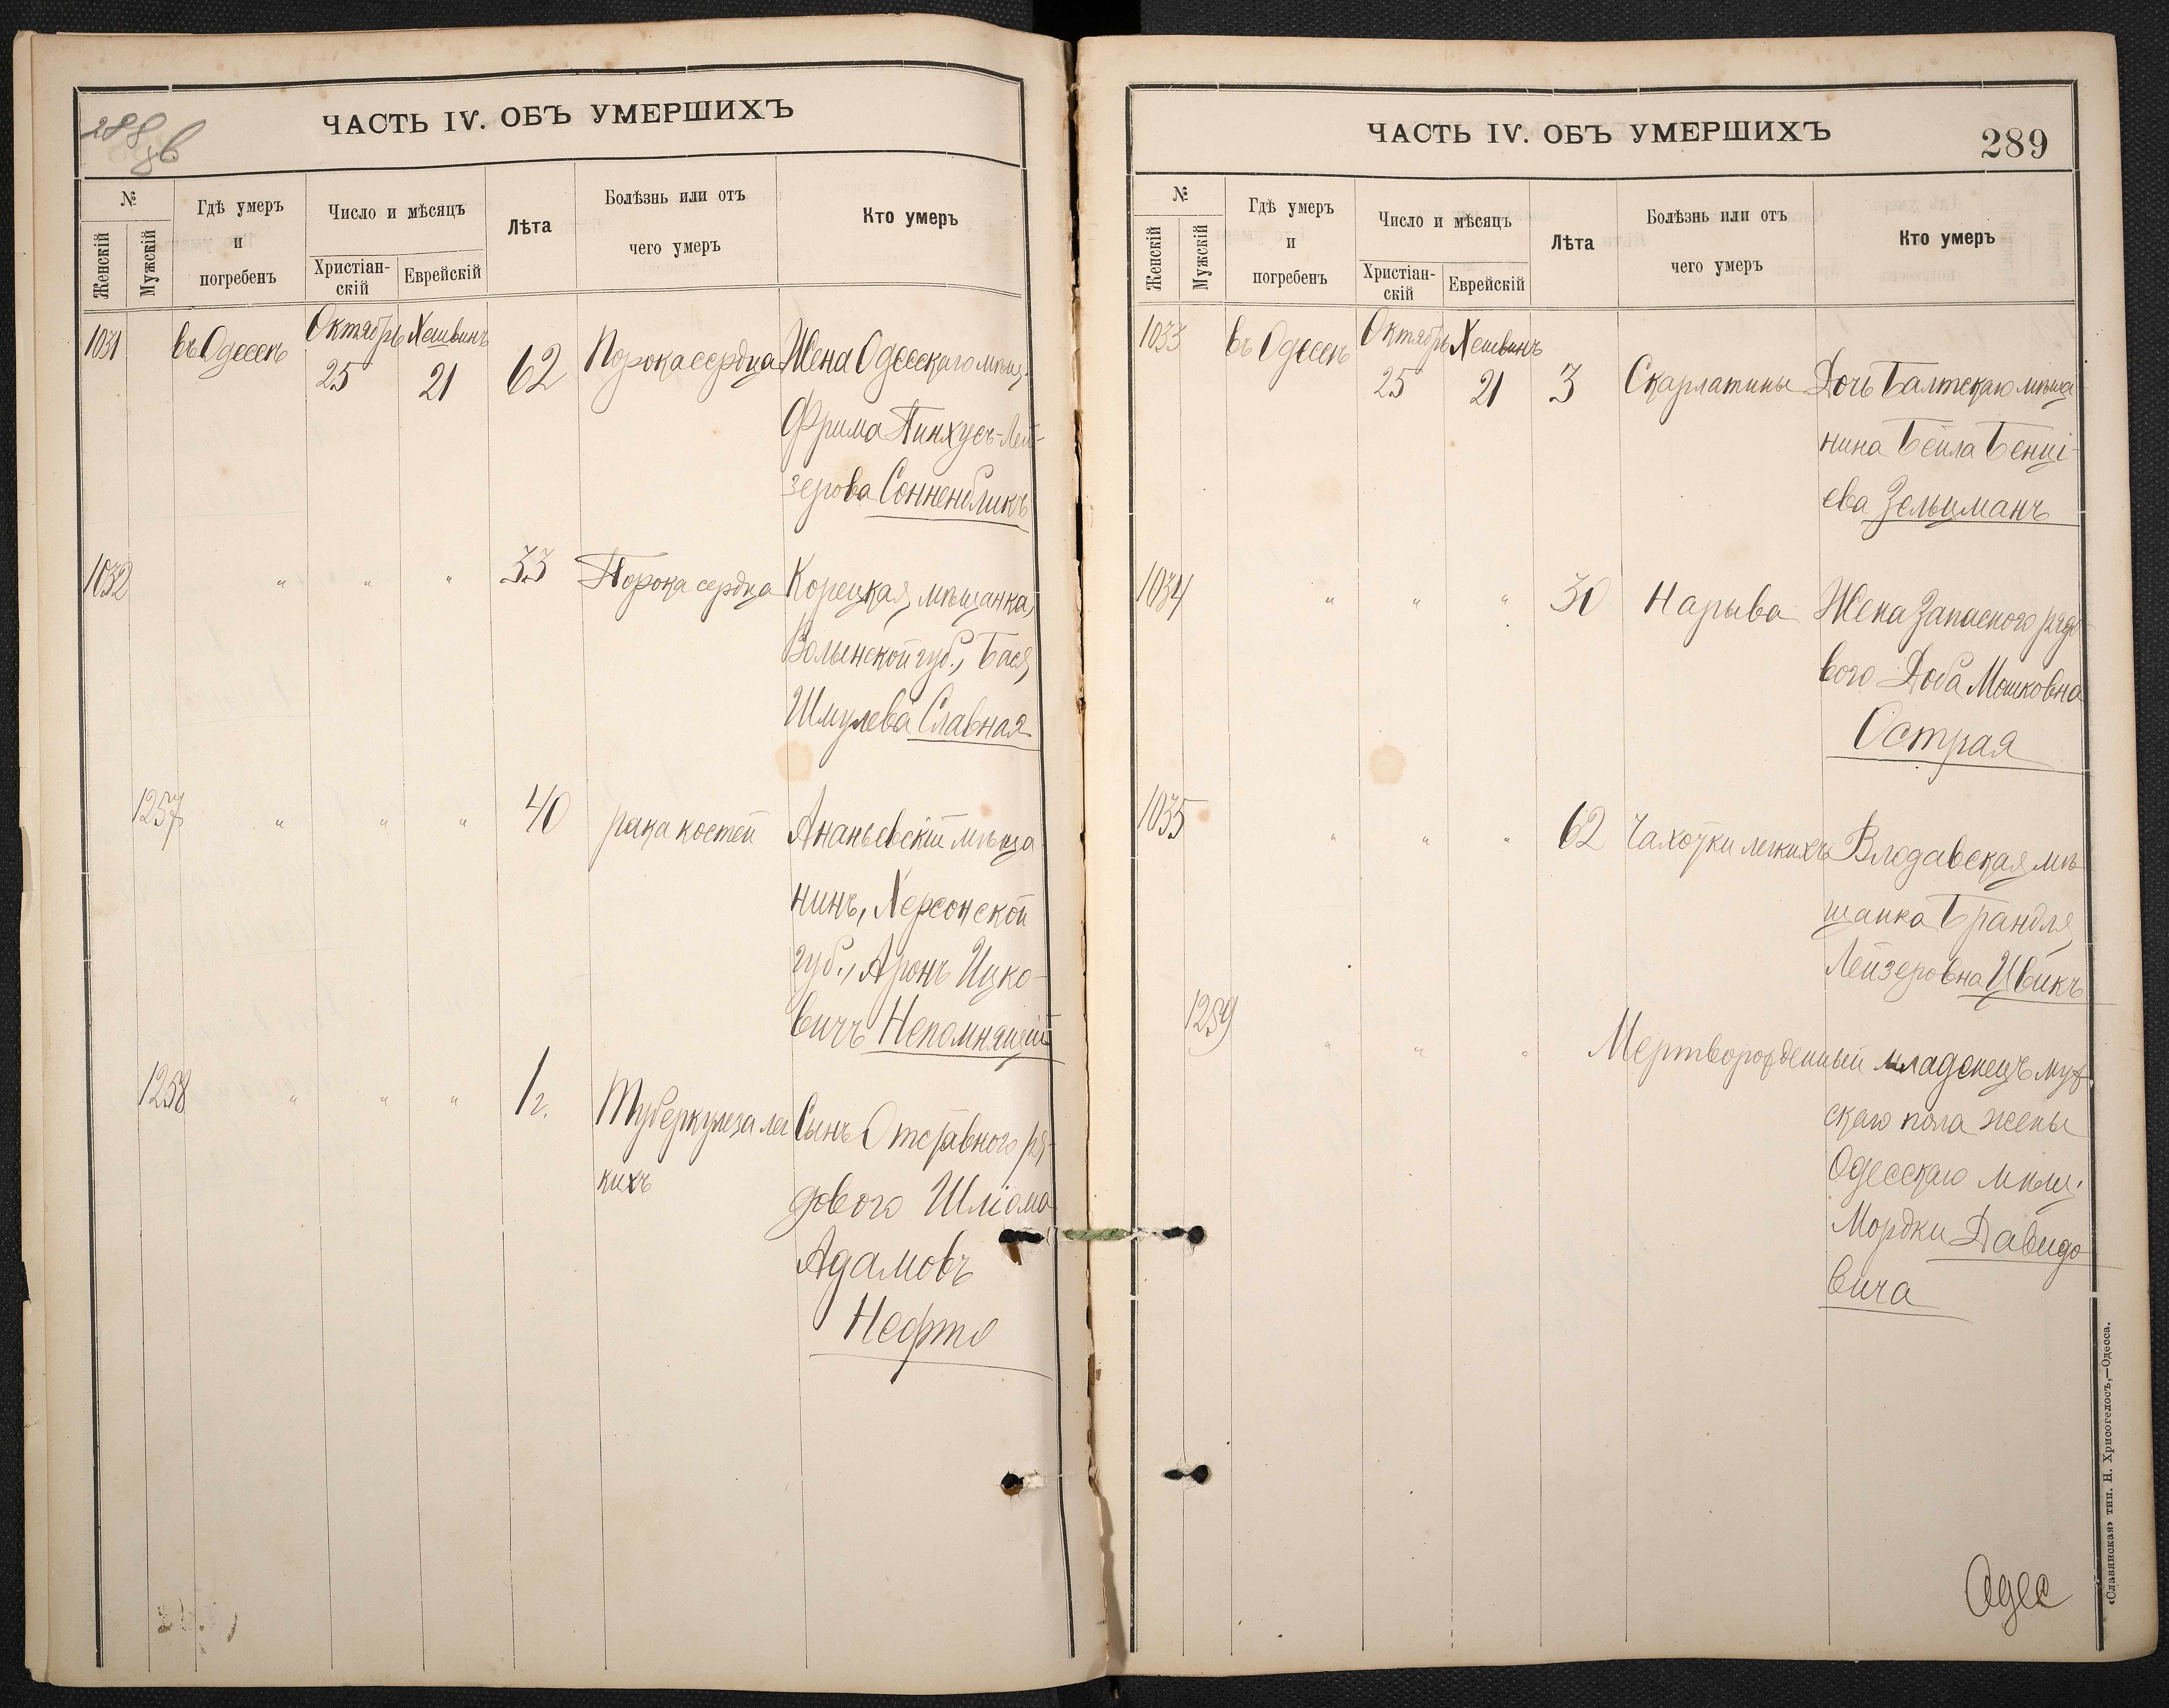 ЧАСТЬ IV. ОБЪ УМЕРШИХЪ
№
Женскій
Мужскій
Гдѣ умеръ
и
погребенъ
Число и мѣсяцъ
Христіан-
скій
Еврейскій
Лѣта
Болѣзнь или отъ
чего умеръ
Кто умеръ
1031 въ Одессѣ Октябрь Хешвинъ
25 21 62 Порока сердца Жена Одесскаго мѣщ.
Фрима Пинхусъ-Лей-
зерова Сонненбликъ
1032 " " " 33 Порока сердца Корецкая мѣщанка,
Волынской губ., Бася
Шмулева Славная
1257 " " " 40 рака костей Ананьевскій мѣща
нинъ, Херсонской
губ., Аронъ Ицко-
вичъ Непомнящій
1258 " " " 1 г. Туберкулеза лег Сынъ Отставного ря-
кихъ
дового Шліома
Адамовъ
Нефтл
ЧАСТЬ IV. ОБЪ УМЕРШИХЪ
289
№
Женскій
Мужскій
Гдѣ умеръ
и
погребенъ
Число и мѣсяцъ
Христіан-
скій
Еврейскій
Лѣта
Болѣзнь или отъ
чего умеръ
Кто умеръ
1033 въ Одессѣ Октябрь Хешвинъ
25 21 3 Скарлатины Дочь Балтскаго мѣща
нина Бейла Бенці-
ева Зельцманъ
1034 " " " 30 Нарыва Жена Запасного рядо
вого Доба Мошковна
Острая
1035 " " " 62 Чахотки легкихъ Влодавская мѣ
щанка Брандля
Лейзеровна Цвикъ
1259 " " " Мертворожденный младенецъ муж.
скаго пола жены
Одесскаго мѣщ.
Мордки Давидо
вича
Одес
«Славянская» тип. Н. Хрисогелосъ,—Одесса.